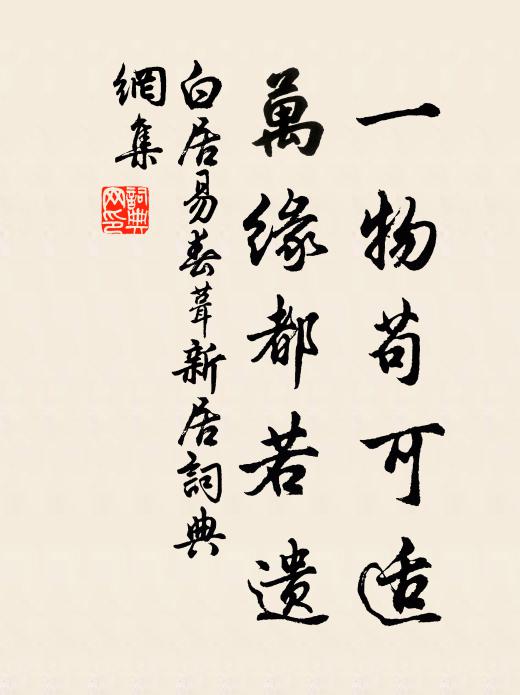 一物苟可适
萬緣都若遗
白居易春葺新居詞典
網集
詞典
网印